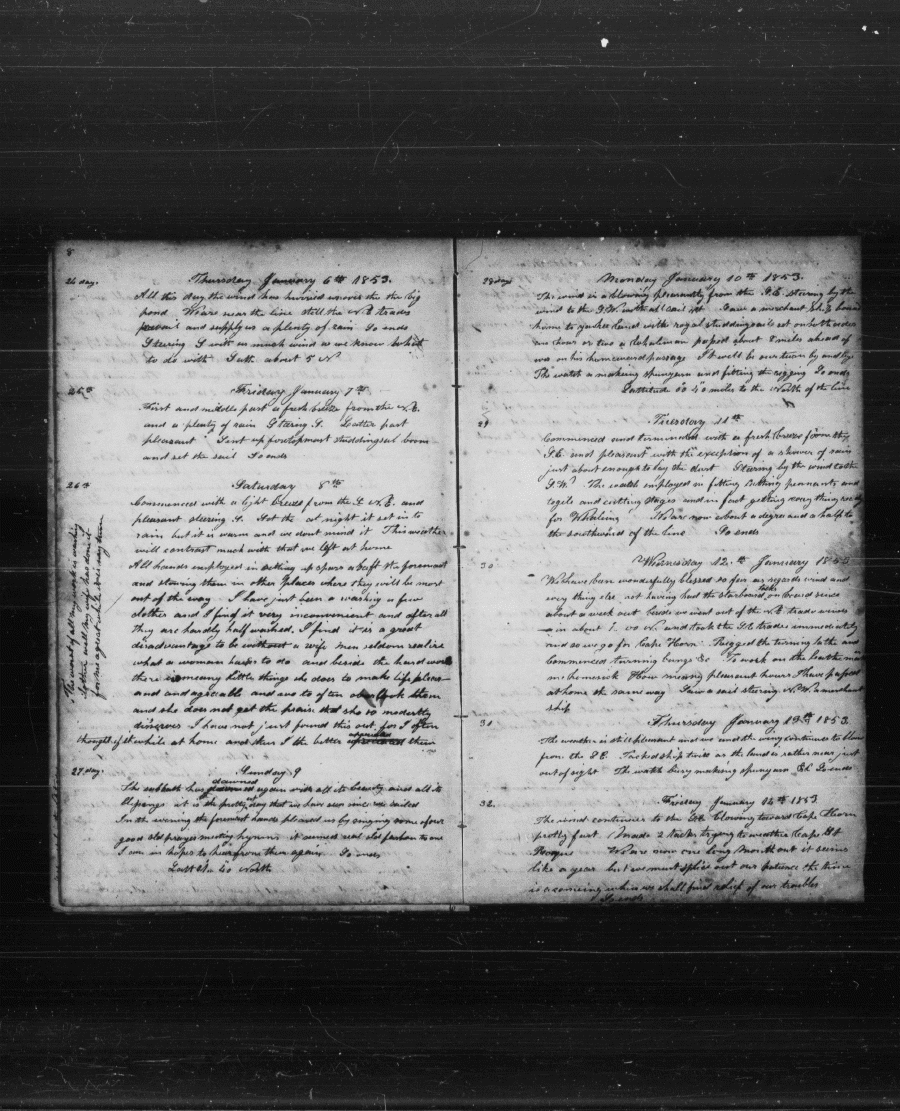 8
24 day. Thursday January 6th 1853.
All this day the wind has hurried us over the the big
pond We are near the line still the N.E. trades
prevail and supply us a plenty of rain So ends
Steering S with as much wind as we know what
to do with Latt about 5 N
25th Friday January 7th
First and middle part a fresh breeze from the N.E.
and a plenty of rain Steering S. Latter part
pleasant Sent up foretopmast studdingsail boom
and set the sail So ends
26th Saturday 8th
Commenced with a light breeze from the N.E. and
pleasant steering S. at night it set in to
rain but it is warm and we dont mind it This weather
will contrast much with that we left at home
All hands employed in setting up spars abaft the foremast
and stowing them in other places where they will be most
out of the way I have just been a washing a few
clothes and I find it very inconvenient and after all
they are hardly half washed. I find it is a great
disadvantage to be without a wife men seldom realize
what a woman has to do and beside the hard work
there is meany little things she does to make life pleas—
and and agreeable and we to often overlook them
and she does not get the praise that she so modestly
deserves I have not just found this out for I often
thought of it while at home and then I the better them
The worst of all my work is washing
clothes well my wife has done it
for me agreat while but my turn
27 day. Sunday 9
The sabbath has dawned again with all its beauty and all its
it is the pretty day that we have seen since we sailed
In the evening the foremast hands pleased us by singing some of our
good old prayer meeting hymns it seemed real old fashion to me
I am in hopes to hear from them again So ends
Latt 1 40 North
28 day Monday January 10th 1853.
The wind is a blowing pleasantly from the S.E. stearing by the
wind to the S.W. with all sail set Saw a merchant ship bound
home to yankee land with royal studdingsails set on both sides
an hour or two a whaleman passed about 8 miles ahead of
us on his homeward passage It will be our turn by and by
The watch a making spunyarn and fitting the rigging So ends
Lattitude 00 40 miles to the North of the line
29 Tuesday 11th
Commenced and terminated with a fresh breeze from the
S.E. and pleasant with the exception of a shower of rain
just about enough to lay the dust Stearing by the wind to the
S.W. The watch employed in fitting cutting pennants and
togels and cutting stages and in fact getting every thing ready
for Whaleing We are now about a degree and a half to
the southward of the line So ends
30 Wednesday 12.th January 1853
We have been wonderfully blessed so far as regards wind and
every thing else not having had the starboard tacks on board since
about a week out besides we went out of the N.E. trade winds
in about 1.00 N and took the S.E. trades immediately
and so we go for Cape Horn Rigged the turning lathe and
commenced turning bungs &c To work on the leathe makes
me homesick How meany pleasant hours I have passed
at home the same way Saw a sail stearing N.W. a merchant
ship
31 Thursday January 13th 1853
The weather is still pleasant and we and the wing continues to blow
from the S.E. Tacked ship twice as the land is rather near just
out of sight The watch busy making spunyarn &c So ends
32. Friday January 14th 1853
The wind continues to the blowing toward Cape Horn
pretty fast Made 2 tacks trying to weather Cape St
Roques We are now one long month out it seems
like a year but we must splice out our patience the time
is a comeing when we shall find a help of our troubles
So ends